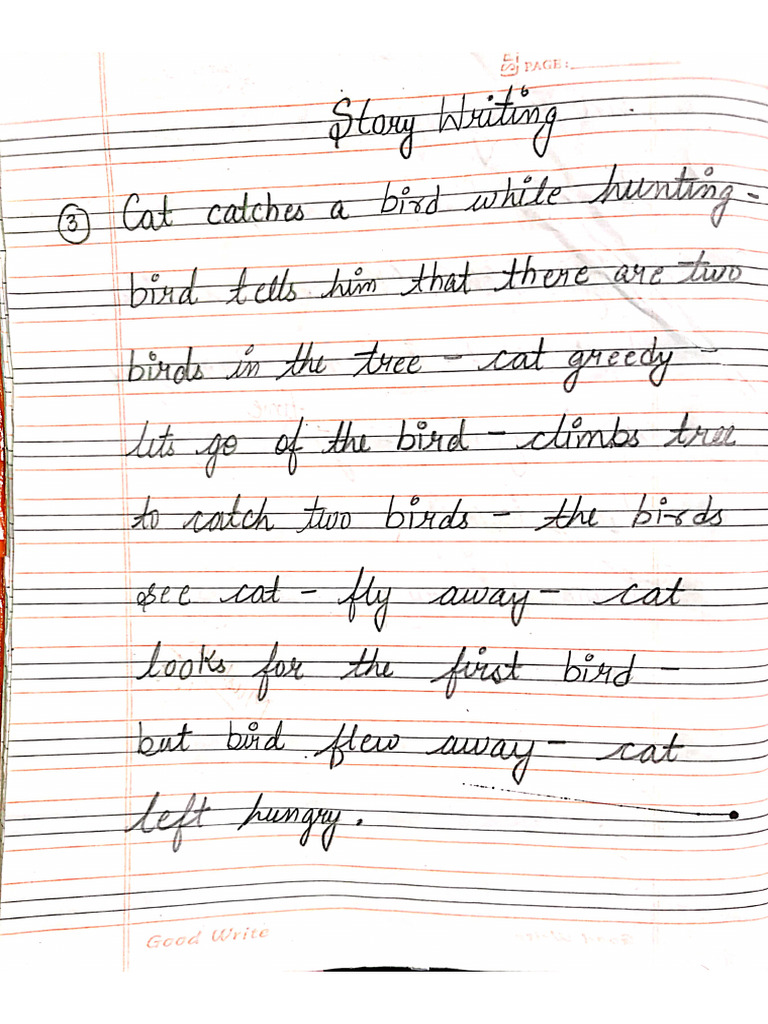 PAGE:
Story Writing
③ Cat catches a bird while hunting-
bird tells him that there are two
birds in the tree - cat greedy -
lets go of the bird - climbs tree
to catch two birds - the birds
see cat - fly away - cat
looks for the first bird -
but bird flew away - cat
left hungry.
Good Write